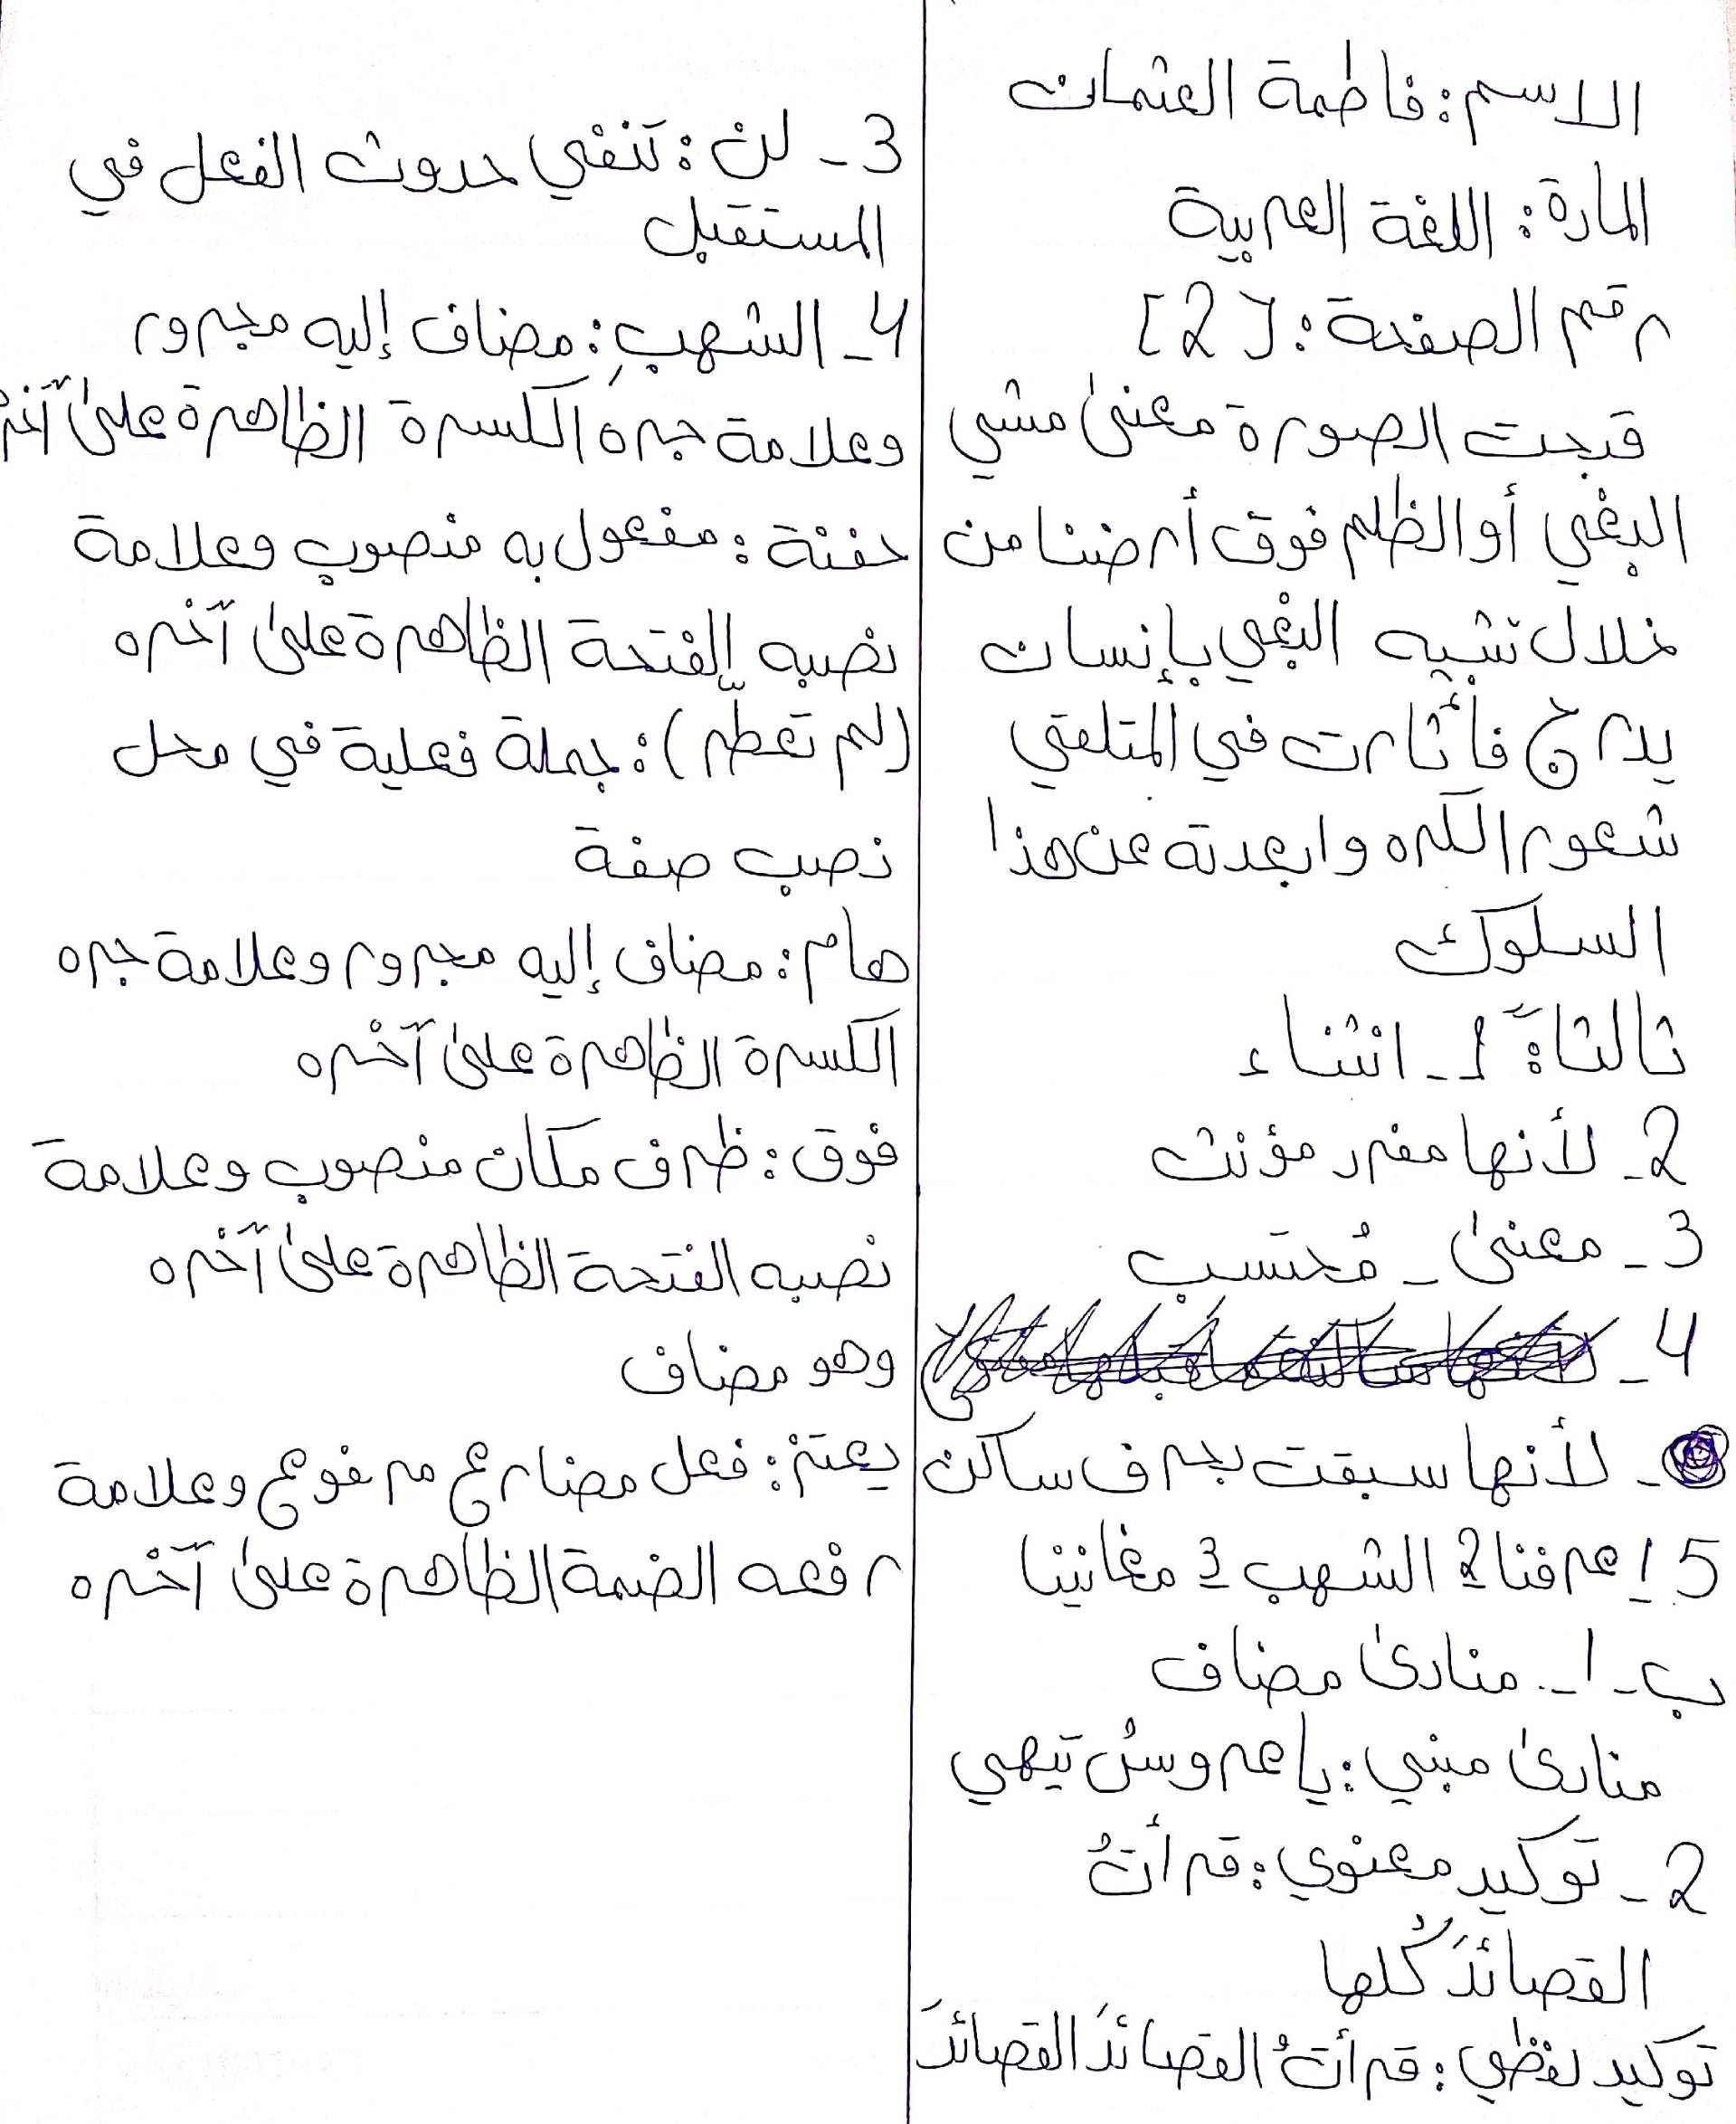 الاسم: فاطمة العثمان
المادة: اللغة العربية
رقم الصفحة: [2]
قبحت الصورة معنى مشي
البغي أو الظلم فوق أرضنا من
خلال تشبيه البغي بإنسان
يدرج فأثارت في المتلقي
شعور الكره وابعدته عن هذا
السلوك
ثالثاً: 1_ انثناء
2_ لأنها مفرد مؤنث
3_ معنى _ مُحتسب
4_
_ لأنها سبقت بحرف ساكن
5 1 عرفنا 2 الشهب 3 مغانينا
ب_ 1_ منادى مضاف
منادى مبني: يا عروسُ تيهي
2_ توكيد معنوي: قرأتُ
القصائدَ كُلها
توكيد لفظي: قرأتُ القصائدَ القصائدَ
3_ لن: تنفي حدوث الفعل في
المستقبل
4_ الشهبِ: مضاف إليه مجرور
وعلامة جره الكسرة الظاهرة على آخره
حفنة: مفعول به منصوب وعلامة
نصبه الفتحة الظاهرة على آخره
(لم تعطِّر): جملة فعلية في محل
نصب صفة
هام: مضاف إليه مجرور وعلامة جره
الكسرة الظاهرة على آخره
فوق: ظرف مكان منصوب وعلامة
نصبه الفتحة الظاهرة على آخره
وهو مضاف
يعتز: فعل مضارع مرفوع وعلامة
رفعه الضمة الظاهرة على آخره